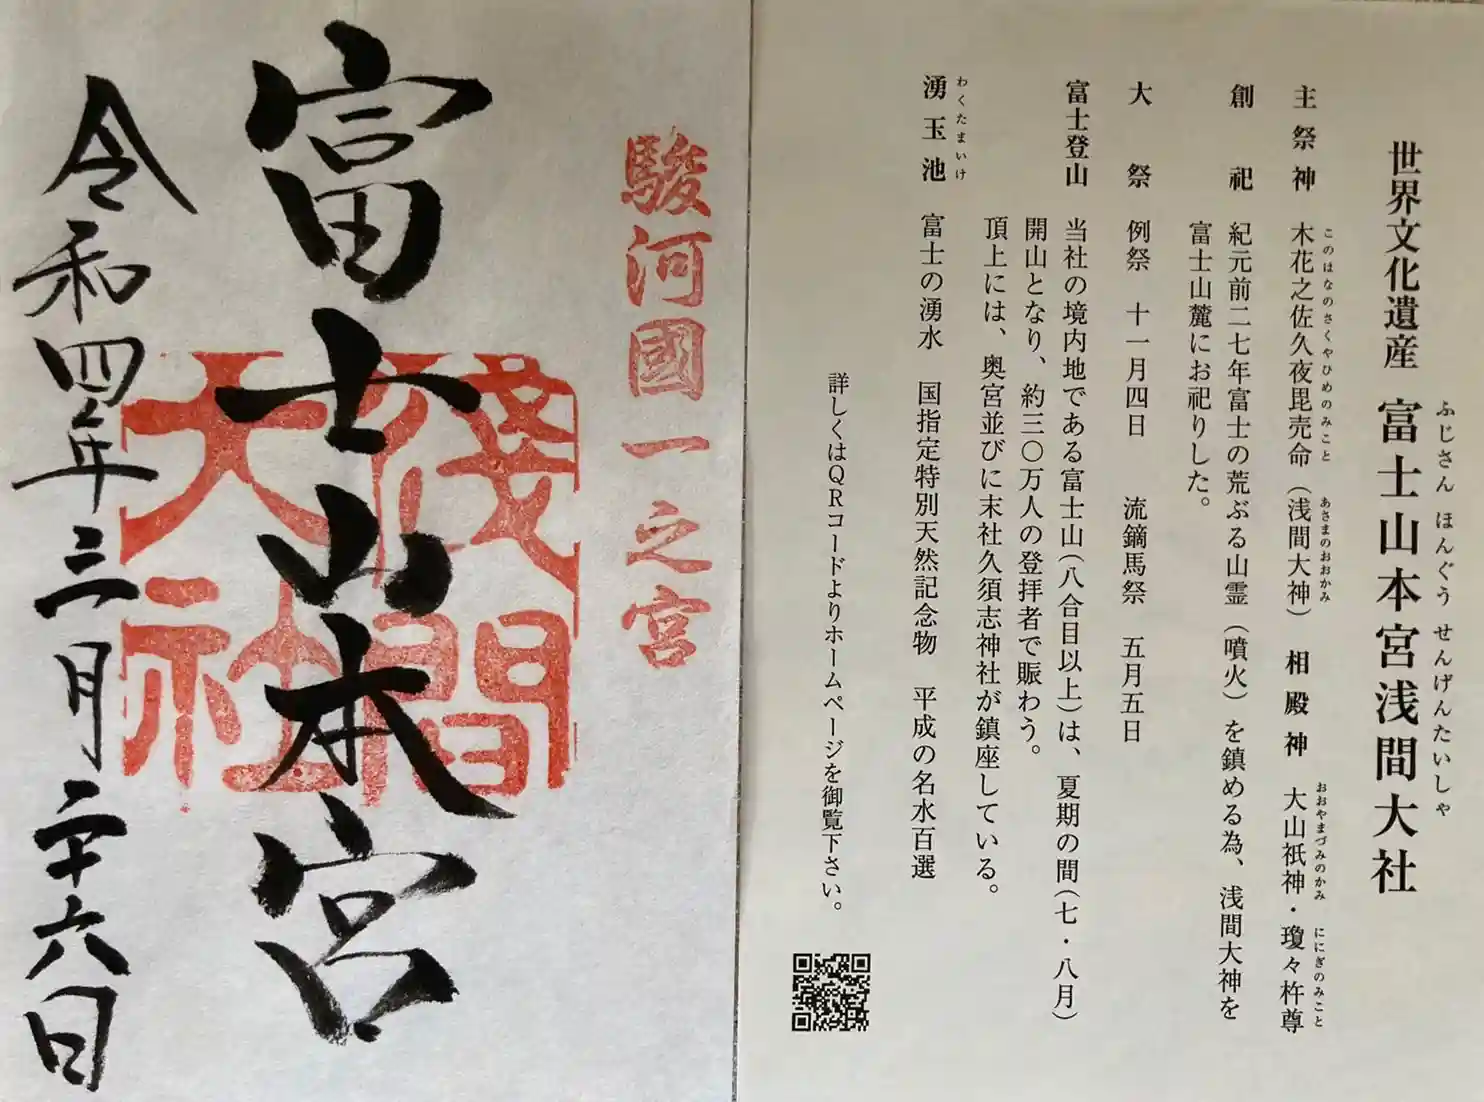 世界文化遺産 富士山本宮浅間大社
ふじさん ほんぐう せんげんたいしゃ
主祭神 木花之佐久夜毘売命（浅間大神） 相殿神 大山祇神・瓊々杵尊
このはなのさくやひめのみこと あさまのおおかみ おおやまづみのかみ ににぎのみこと
創祀 紀元前二七年富士の荒ぶる山霊（噴火）を鎮める為、浅間大神を
富士山麓にお祀りした。
大祭 例祭 十一月四日 流鏑馬祭 五月五日
富士登山 当社の境内地である富士山（八合目以上）は、夏期の間（七・八月）
開山となり、約三〇万人の登拝者で賑わう。
頂上には、奥宮並びに末社久須志神社が鎮座している。
湧玉池 富士の湧水 国指定特別天然記念物 平成の名水百選
わくたまいけ
詳しくはQRコードよりホームページを御覧下さい。
駿河國一之宮
富士山本宮
淺間
大社
令和四年三月二十六日